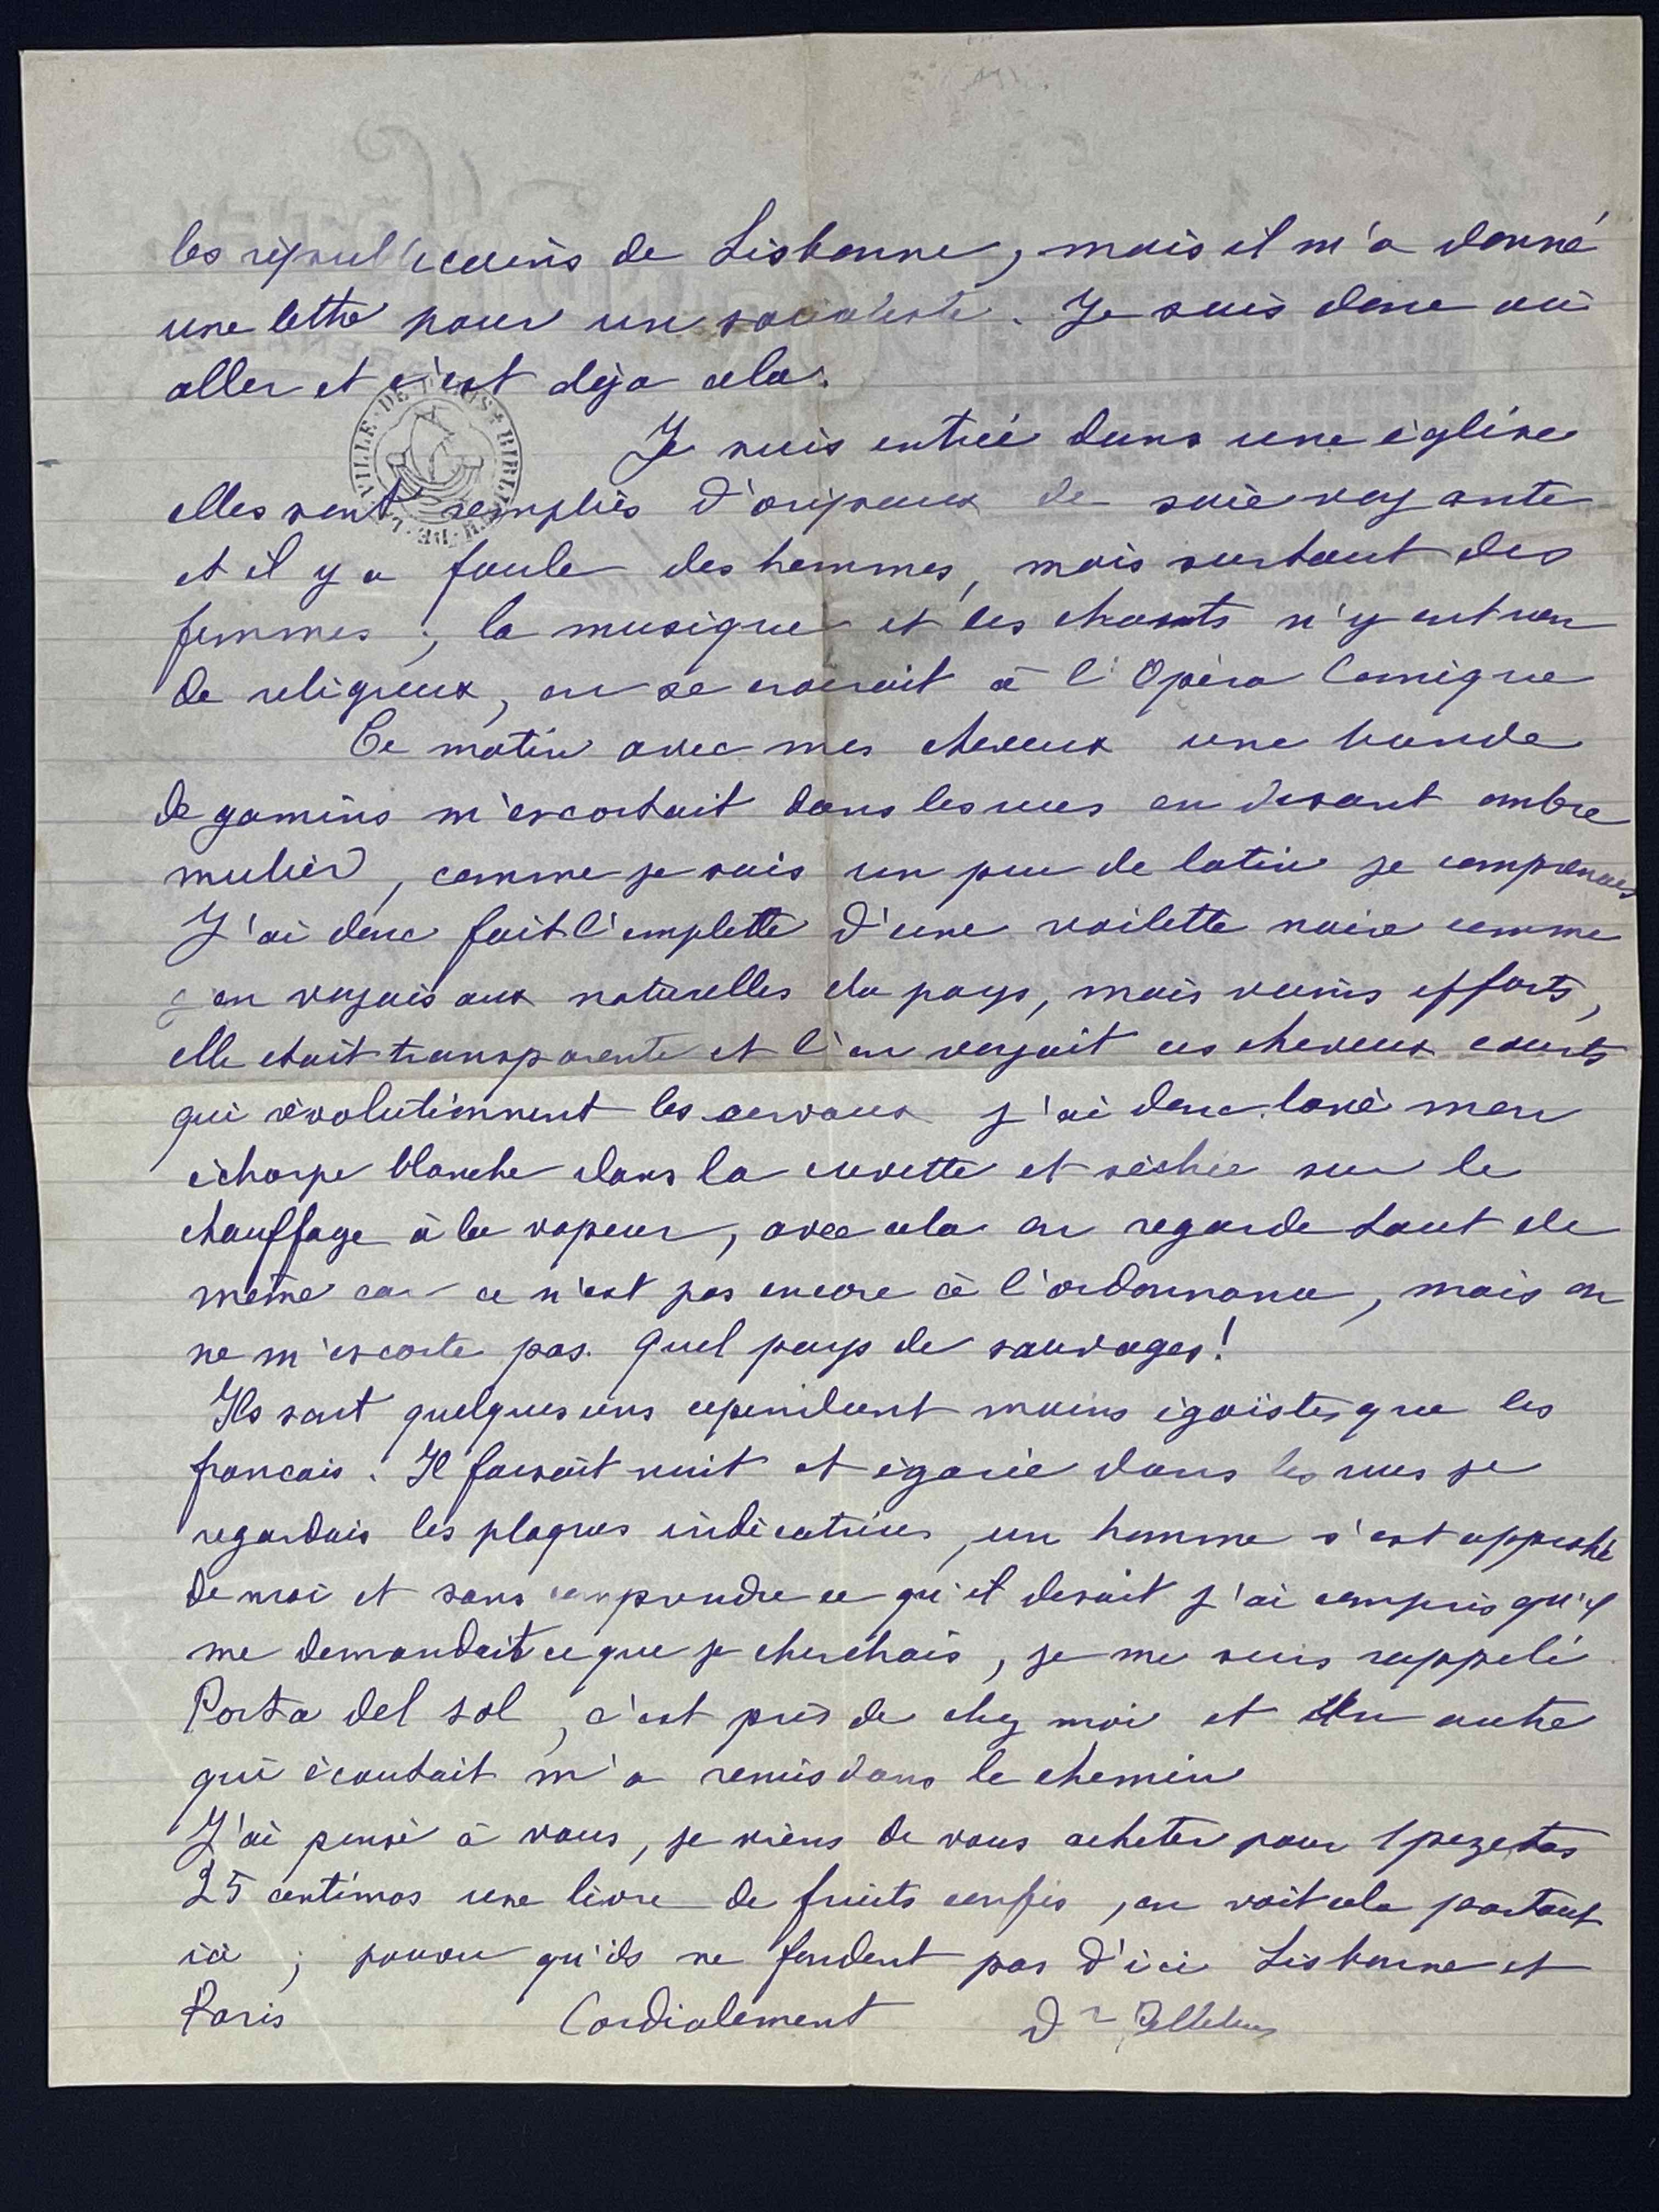 les républicains de Lisbonne, mais il m'a donné
une lettre pour un socialiste. Je sais donc où
aller et c'est déjà cela.
VILLE DE PARIS BIBLI
Je suis entrée dans une église
elles sont remplies d'oripeaux de soie voyante
et il y a foule des hommes, mais surtout des
femmes ; la musique et les chants n'y ont rien
de religieux, on se croirait à l'Opéra Comique
Ce matin avec mes cheveux une bande
de gamins m'escortait dans les rues en disant ombre
mulier, comme je sais un peu de latin je comprenais
J'ai donc fait l'emplette d'une voilette noire comme
j'en voyais aux naturelles du pays, mais vains efforts,
elle etait transparente et l'on voyait ces cheveux courts
qui révolutionnent les cerveaux j'ai donc lavé mon
écharpe blanche dans la cuvette et séchée sur le
chauffage à la vapeur, avec cela on regarde tout de
même car ce n'est pas encore à l'ordonnance, mais on
ne m'escorte pas. Quel pays de sauvages!
Ils sont quelques uns cependant moins égoïstes que les
francais. Il faisait nuit et égarée dans les rues je
regardais les plaques indicatrices, un homme s'est approché
de moi et sans comprendre ce qu'il disait j'ai compris qu'il
me demandait ce que je cherchais, je me suis rappelé
Porta del sol, c'est près de chez moi et Un autre
qui écoutait m'a remis dans le chemin
J'ai pensé à vous, je viens de vous acheter pour 1 pezetas
25 centimos une livre de fruits confis, on voit cela partout
ici ; pourvu qu'ils ne fondent pas d'ici Lisbonne et
Paris Cordialement Dr Pelletier